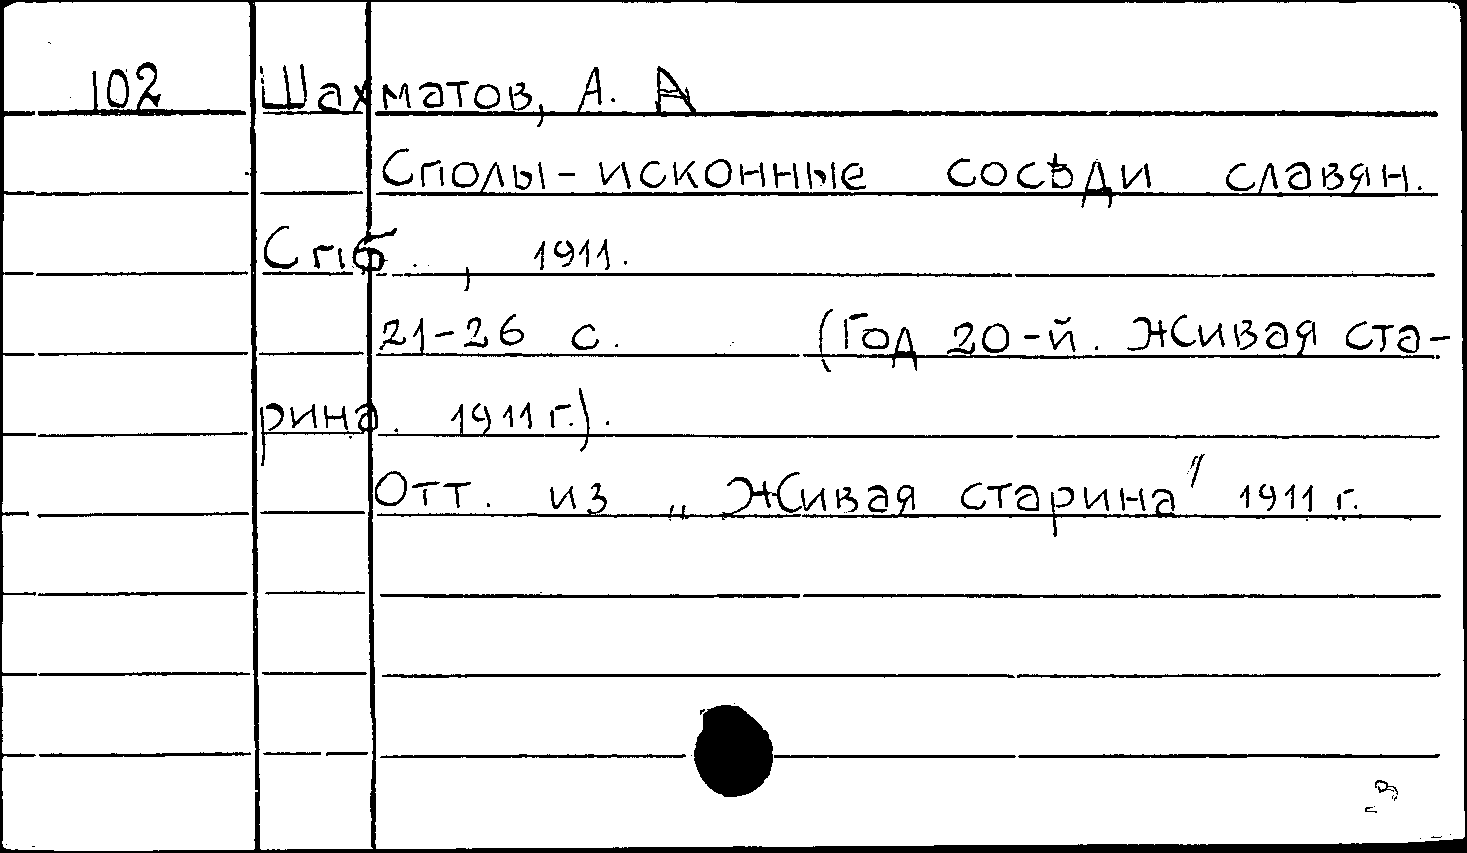 102 Шахматов, А. А
Сполы - исконные сосѣди славян.
Спб., 1911.
21-26 с. (Год 20-й. Живая ста-
рина. 1911 г.).
Отт. из „Живая старина" 1911 г.